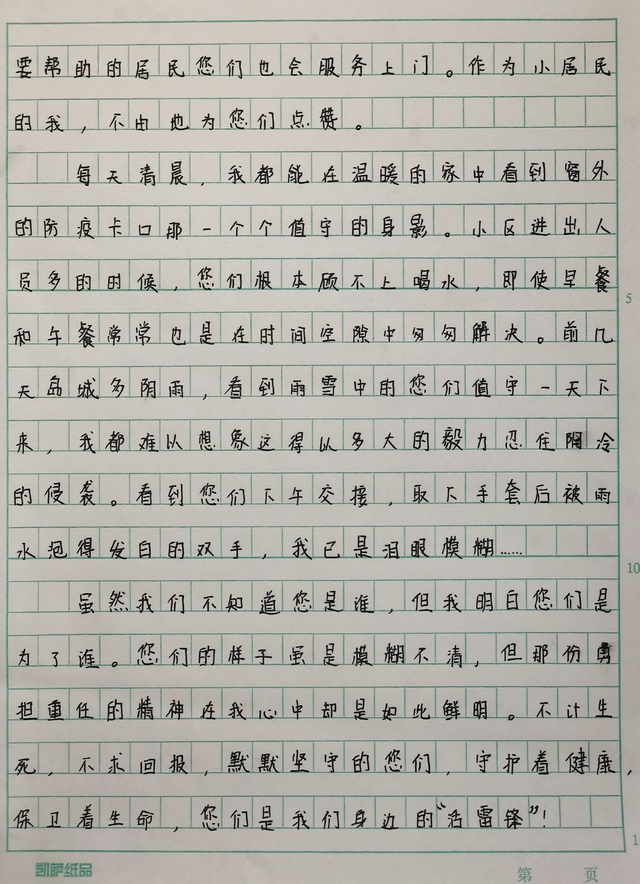 要帮助的居民您们也会服务上门。作为小居民
的我，不由地为您们点赞。
每天清晨，我都能在温暖的家中看到窗外
的防疫卡口那一个个值守的身影。小区进出人
员多的时候，您们根本顾不上喝水，即使早餐
5
和午餐常常也是在时间空隙中匆匆解决。前几
天岛城多阴雨，看到雨雪中的您们值守一天下
来，我都难以想象这得以多大的毅力忍住阴冷
的侵袭。看到您们下午交接，取下手套后被雨
水泡得发白的双手，我已是泪眼模糊……
10
虽然我们不知道您是谁，但我明白您们是
为了谁。您们的样子虽是模糊不清，但那份勇
担重任的精神在我心中却是如此鲜明。不计生
死，不求回报，默默坚守的您们，守护着健康，
保卫着生命，您们是我们身边的“活雷锋”！
1
凯萨纸品
第 页